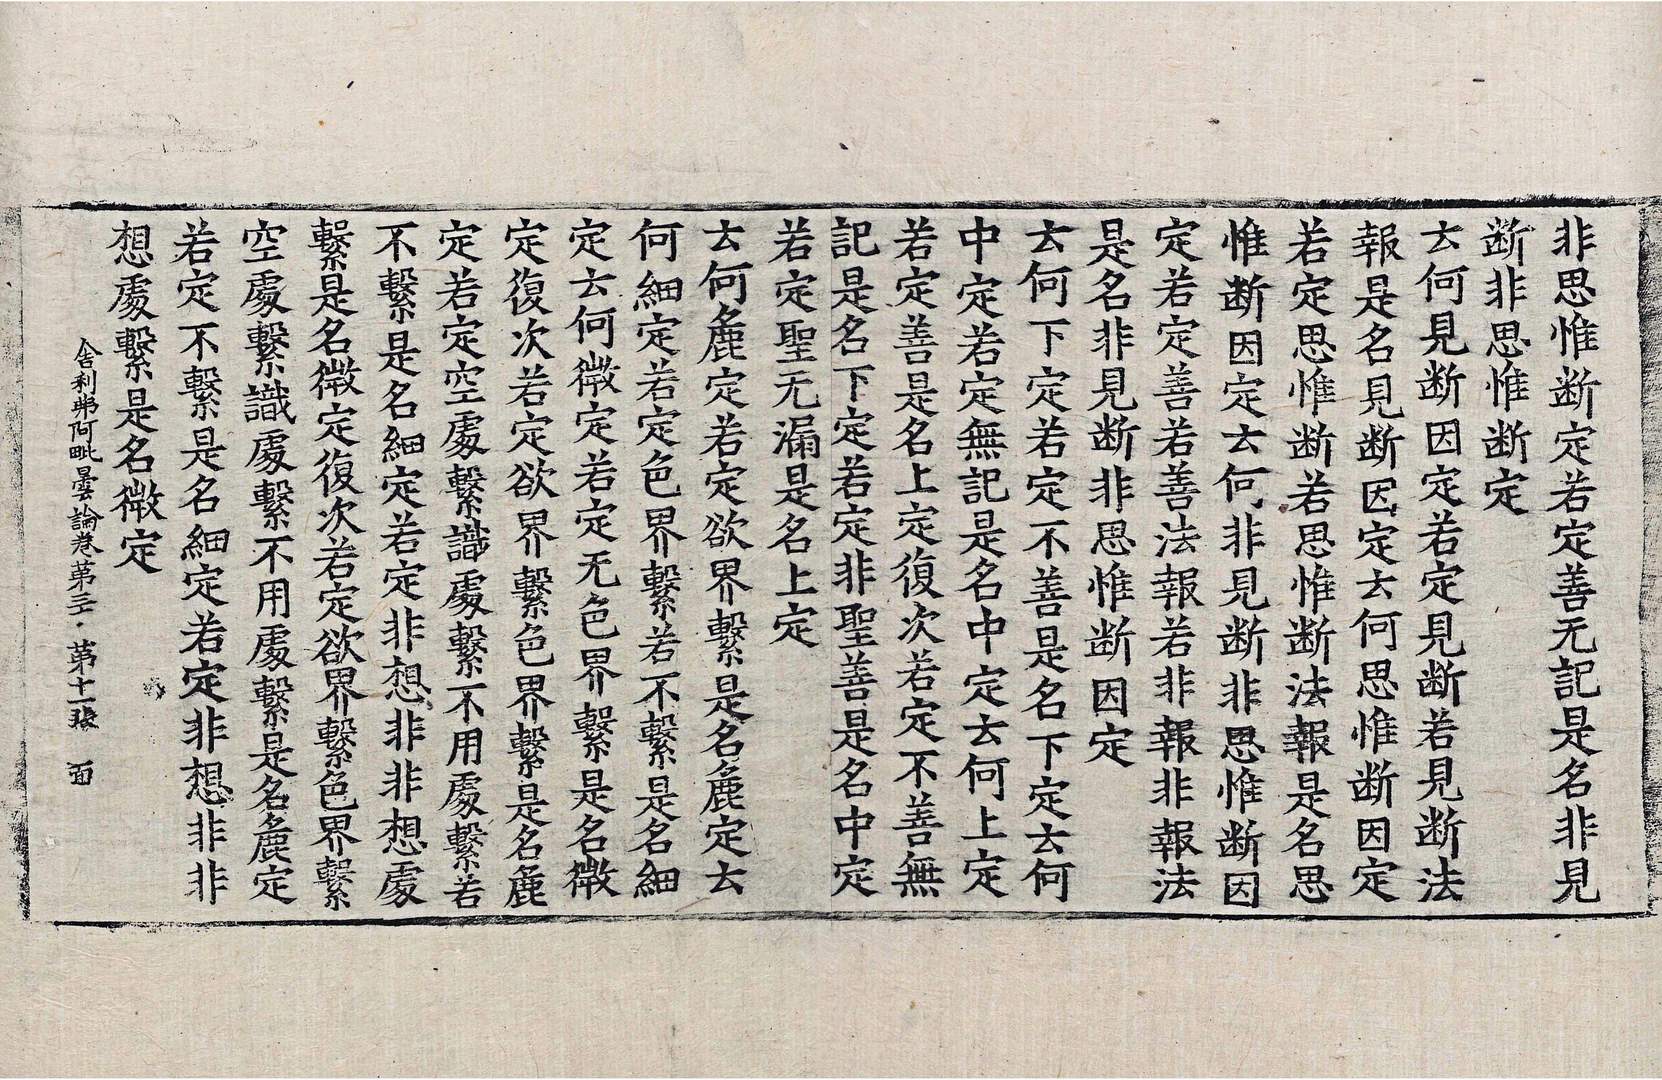 非思惟断定若定善无記是名非見
断非思惟断定
云何見断因定若定見断若見断法
報是名見断因定云何思惟断因定
若定思惟断若思惟断法報是名思
惟断因定云何非見断非思惟断因
定若定善若善法報若非報非報法
是名非見断非思惟断因定
云何下定若定不善是名下定云何
中定若定無記是名中定云何上定
若定善是名上定復次若定不善無
記是名下定若定非聖善是名中定
若定聖无漏是名上定
云何麁定若定欲界繫是名麁定云
何細定若定色界繫若不繫是名細
定云何微定若定无色界繫是名微
定復次若定欲界繫色界繫是名麁
定若定空處繫識處繫不用處繫若
不繫是名細定若定非想非非想處
繫是名微定復次若定欲界繫色界繫
空處繫識處繫不用處繫是名麁定
若定不繫是名細定若定非想非非
想處繫是名微定
舍利弗阿毗曇論卷第三十 第十一張 面